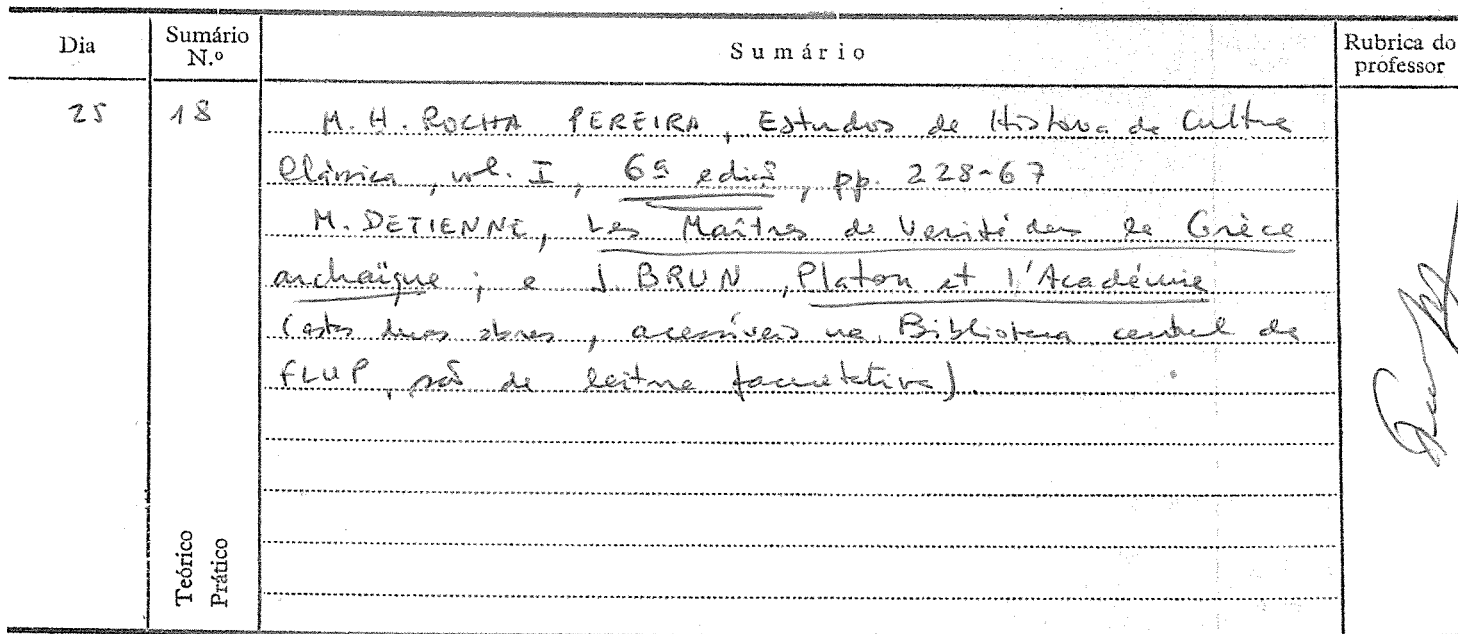 Dia Sumário N.º Sumário Rubrica do professor
25 18 M. H. ROCHA PEREIRA, Estudos de História da Cultura
Clássica, vol. I, 6ª edição, pp. 228-67
M. DETIENNE, Les Maîtres de Vérité dans la Grèce
archaïque; e J. BRUN, Platon et l'Académie
(estas duas obras, acessíveis na Biblioteca central da
FLUP, são de leitura facultativa).
Teórico
Prático